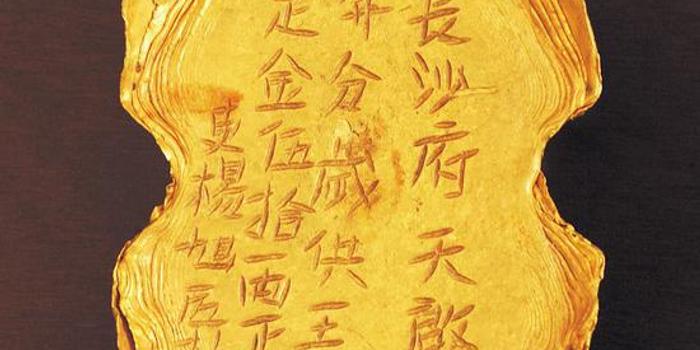 長沙府天啟
年分歲供王
足金伍拾兩正
吏楊旭匠